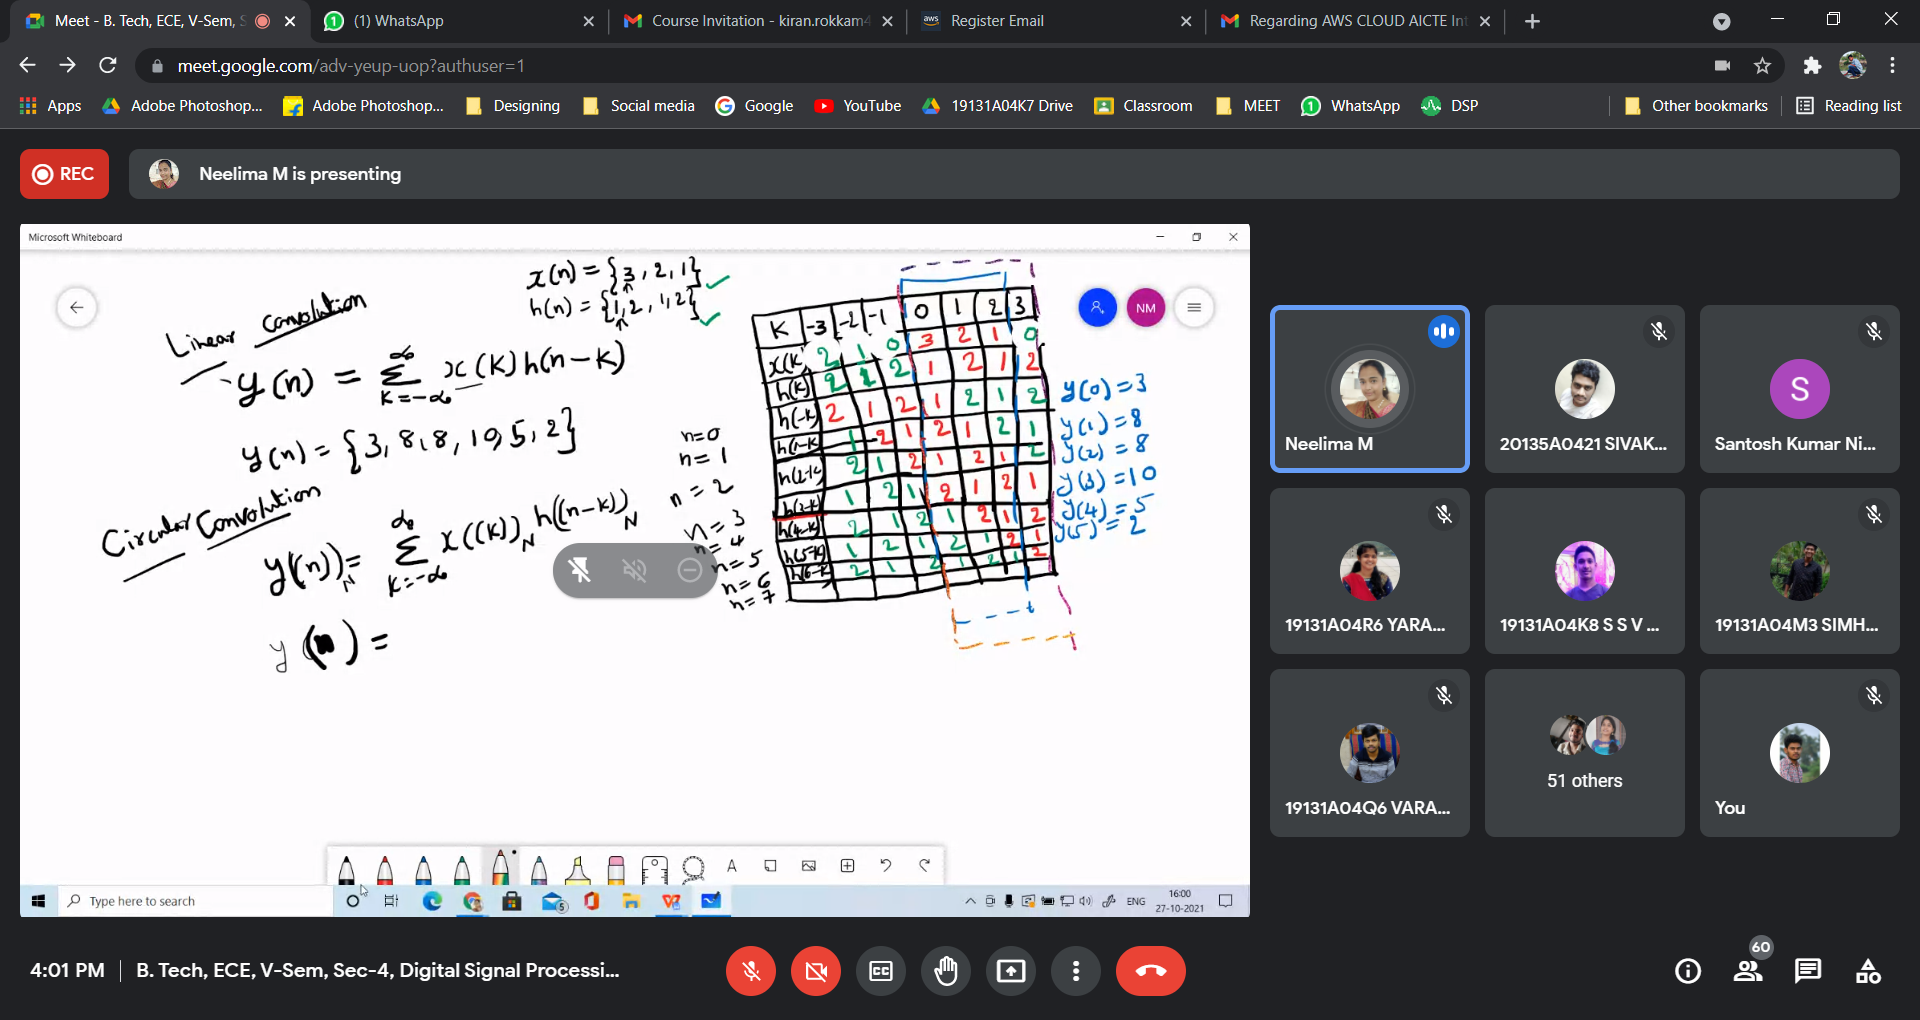 Meet - B. Tech, ECE, V-Sem, S
(1) WhatsApp
Course Invitation - kiran.rokkam4
Register Email
Regarding AWS CLOUD AICTE Int
meet.google.com/adv-yeup-uop?authuser=1
Apps
Adobe Photoshop...
Adobe Photoshop...
Designing
Social media
Google
YouTube
19131A04K7 Drive
Classroom
MEET
WhatsApp
DSP
Other bookmarks
Reading list
REC
Neelima M is presenting
Microsoft Whiteboard
x(n) = {3, 2, 1}
h(n) = {1, 2, 1, 2}
Linear Convolution
y(n) = ∑ x(K) h(n-K)
∞
K=-∞
y(n) = {3, 8, 8, 10, 5, 2}
Circular Convolution
y((n))N = ∑ x((K))N h((n-K))N
∞
K=-∞
y(n) =
n=0
n=1
n=2
n=3
n=4
n=5
n=6
n=7
K -3 -2 -1 0 1 2 3
x(K) 2 1 0 3 2 1 0
h(K) 2 1 2 1 2 1 2
h(-K) 2 1 2 1 2 1 2
h(1-K 1 2 1 2 1 2 1
h(2-K 2 1 2 1 2 1 2
h(3-K) 1 2 1 2 1 2 1
h(4-K) 2 1 2 1 2 1 2
h(5-K) 1 2 1 2 1 2 1
h(6-K 2 1 2 1 2 1 2
y(0) = 3
y(1) = 8
y(2) = 8
y(3) = 10
y(4) = 5
y(5) = 2
NM
Type here to search
ENG
16:00
27-10-2021
Neelima M
20135A0421 SIVAK...
S
Santosh Kumar Ni...
19131A04R6 YARA...
19131A04K8 S S V ...
19131A04M3 SIMH...
19131A04Q6 VARA...
51 others
You
4:01 PM
B. Tech, ECE, V-Sem, Sec-4, Digital Signal Processi...
60